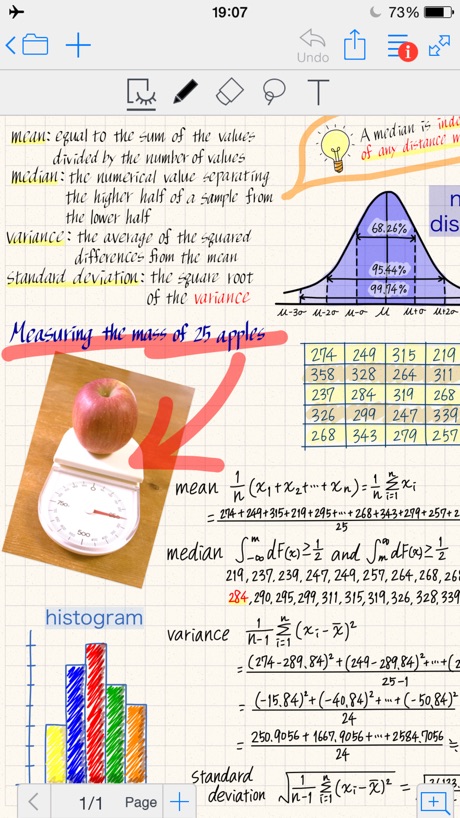 19:07
73%
Undo
i
T
mean: equal to the sum of the values
divided by the number of values
median: the numerical value separating
the higher half of a sample from
the lower half
variance: the average of the squared
differences from the mean
standard deviation: the square root
of the variance
A median is
of any distance
68.26%
95.44%
99.74%
μ-3σ μ-2σ μ-σ μ μ+σ μ+2σ
Measuring the mass of 25 apples
274 249 315 219
358 328 264 311
237 284 319 268
326 299 247 339
268 343 279 257
mean 1/n (x₁+x₂+···+xₙ)=1/n Σⁿᵢ₌₁ xᵢ
= 274+249+315+219+295+···+268+343+279+257+2
25
median ∫ᵐ₋∞ dF(x)≥1/2 and ∫^∞ₘ dF(x)≥1/2
219, 237, 239, 247, 249, 257, 264, 268, 268
284, 290, 295, 299, 311, 315, 319, 326, 328, 339
histogram
variance 1/n-1 Σⁿᵢ₌₁ (xᵢ-x̄)²
= (274-289.84)²+(249-289.84)²+···+(2
25-1
= (-15.84)²+(-40.84)²+···+(-50.84)²
24
= 250.9056+1667.9056+···+2584.7056 ≒
24
standard
deviation √1/n-1 Σⁿᵢ₌₁ (xᵢ-x̄)² =
1/1 Page